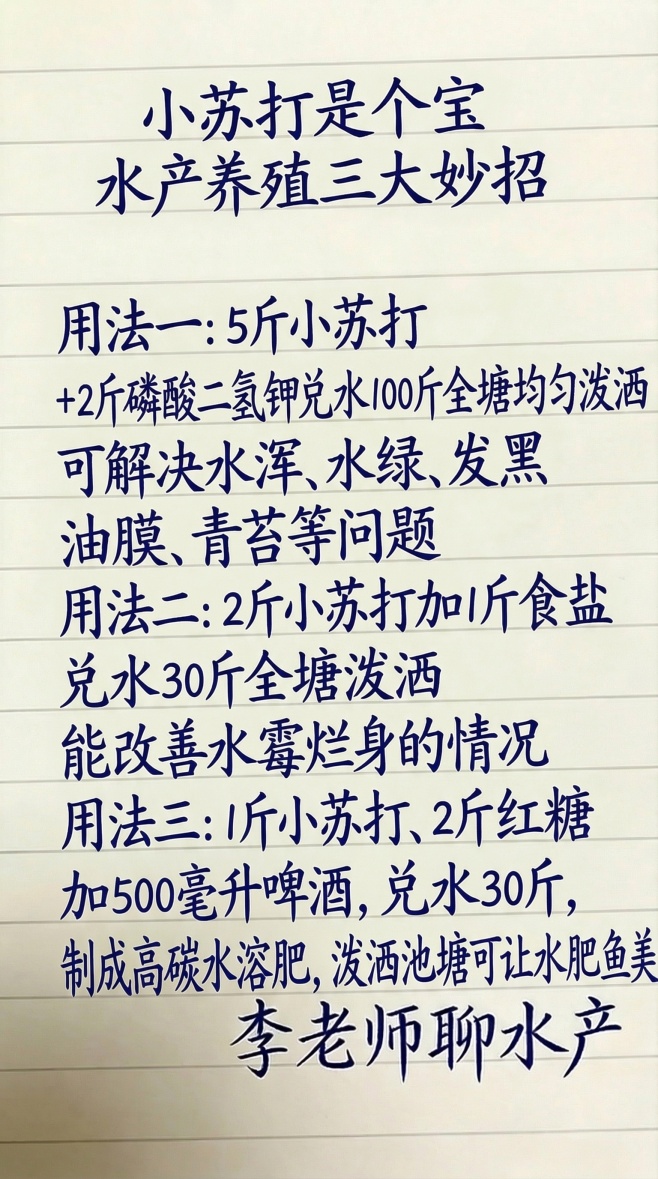 小苏打是个宝
水产养殖三大妙招
用法一:5斤小苏打
+2斤磷酸二氢钾兑水100斤全塘均匀泼洒
可解决水浑、水绿、发黑
油膜、青苔等问题
用法二:2斤小苏打加1斤食盐
兑水30斤全塘泼洒
能改善水霉烂身的情况
用法三:1斤小苏打、2斤红糖
加500毫升啤酒,兑水30斤,
制成高碳水溶肥,泼洒池塘可让水肥鱼美
李老师聊水产